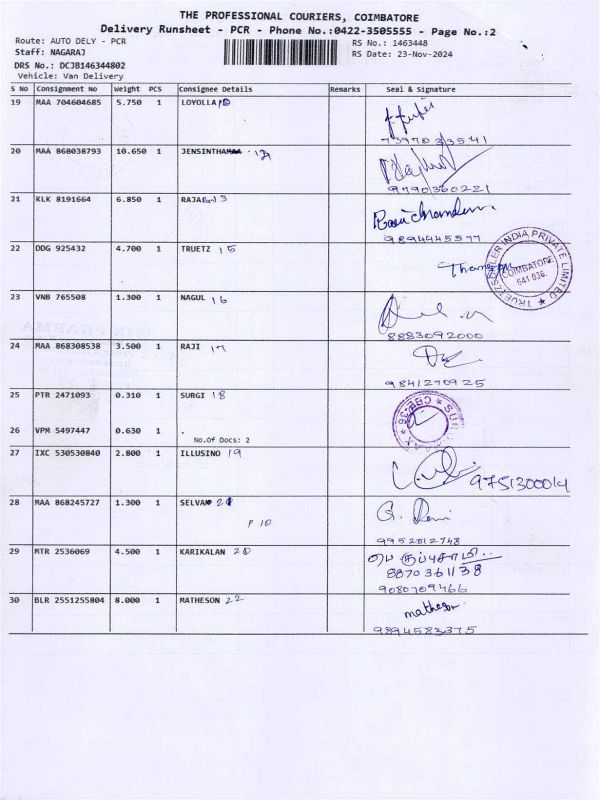 THE PROFESSIONAL COURIERS, COIMBATORE
Delivery Runsheet - PCR - Phone No.:0422-3505555 - Page No.:2
Route: AUTO DELY - PCR RS No.: 1463448
Staff: NAGARAJ RS Date: 23-Nov-2024
DRS No.: DCJB146344802
Vehicle: Van Delivery
S No Consignment No Weight PCS Consignee Details Remarks Seal & Signature
19 MAA 704604685 5.750 1 LOYOLLA
20 MAA 868038793 10.650 1 JENSINTHAMAA
9790360221
21 KLK 8191664 6.850 1 RAJA
9894445577
22 DDG 925432 4.700 1 TRUETZ 15
TRUETZSCHLER INDIA PRIVATE LIMITED
COIMBATORE
641 036.
23 VNB 765508 1.300 1 NAGUL 16
8883092000
24 MAA 868308538 3.500 1 RAJI 17
9841270925
25 PTR 2471093 0.310 1 SURGI 18
CBE-36
26 VPM 5497447 0.630 1 .
No.Of Docs: 2
27 IXC 530530840 2.800 1 ILLUSINO 19
9751300014
28 MAA 868245727 1.300 1 SELVA
P 10
9952512748
29 MTR 2536069 4.500 1 KARIKALAN 20
8870361138
9080709466
30 BLR 2551255804 8.000 1 MATHESON 22
matheson
9894583375